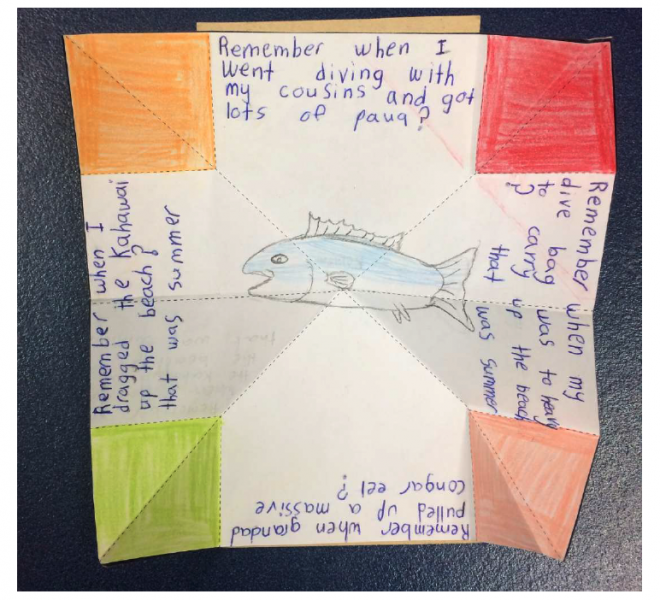 Remember when I
went diving with
my cousins and got
lots of paua?
Remember when my
dive bag was to heavy
to carry up the beach
? that was summer
Remember when grandad
pulled up a massive
congar eel?
Remember when I
dragged the Kahawai
up the beach?
that was summer